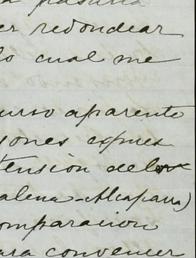 a pasaria
er redondear
lo cual me
urso aparento
ones expres
tensión de los
alena-Alcaparra)
omparacion
ara convencer